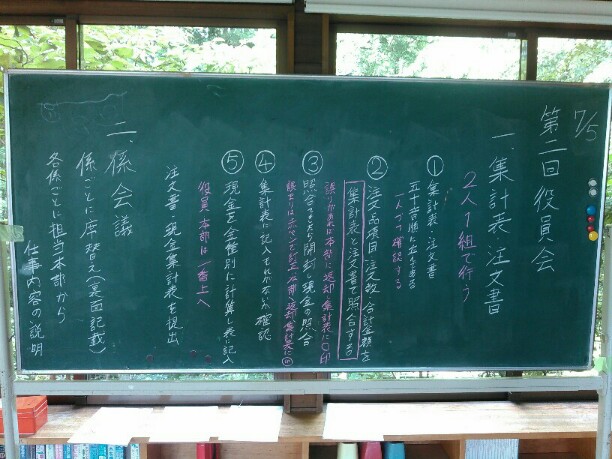 7/5
第二回役員会
一、集計表・注文書
2人1組で行う
① 集計表・注文書
五十音順に並べる
一人ずつ確認する
② 注文品項目・注文数・合計金額を
集計表と注文書で照合する
誤りがあれば本部に返却・集計表に〇印
③ 照合できたら開封し現金の照合
④ 集計表に記入もれがないか確認
⑤ 現金を金種別に計算し表に記入
役員・本部は一番上へ
注文書・現金・集計表を提出
二、係会議
係ごとに席替え(裏面記載)
各係ごとに担当本部から
仕事内容の説明